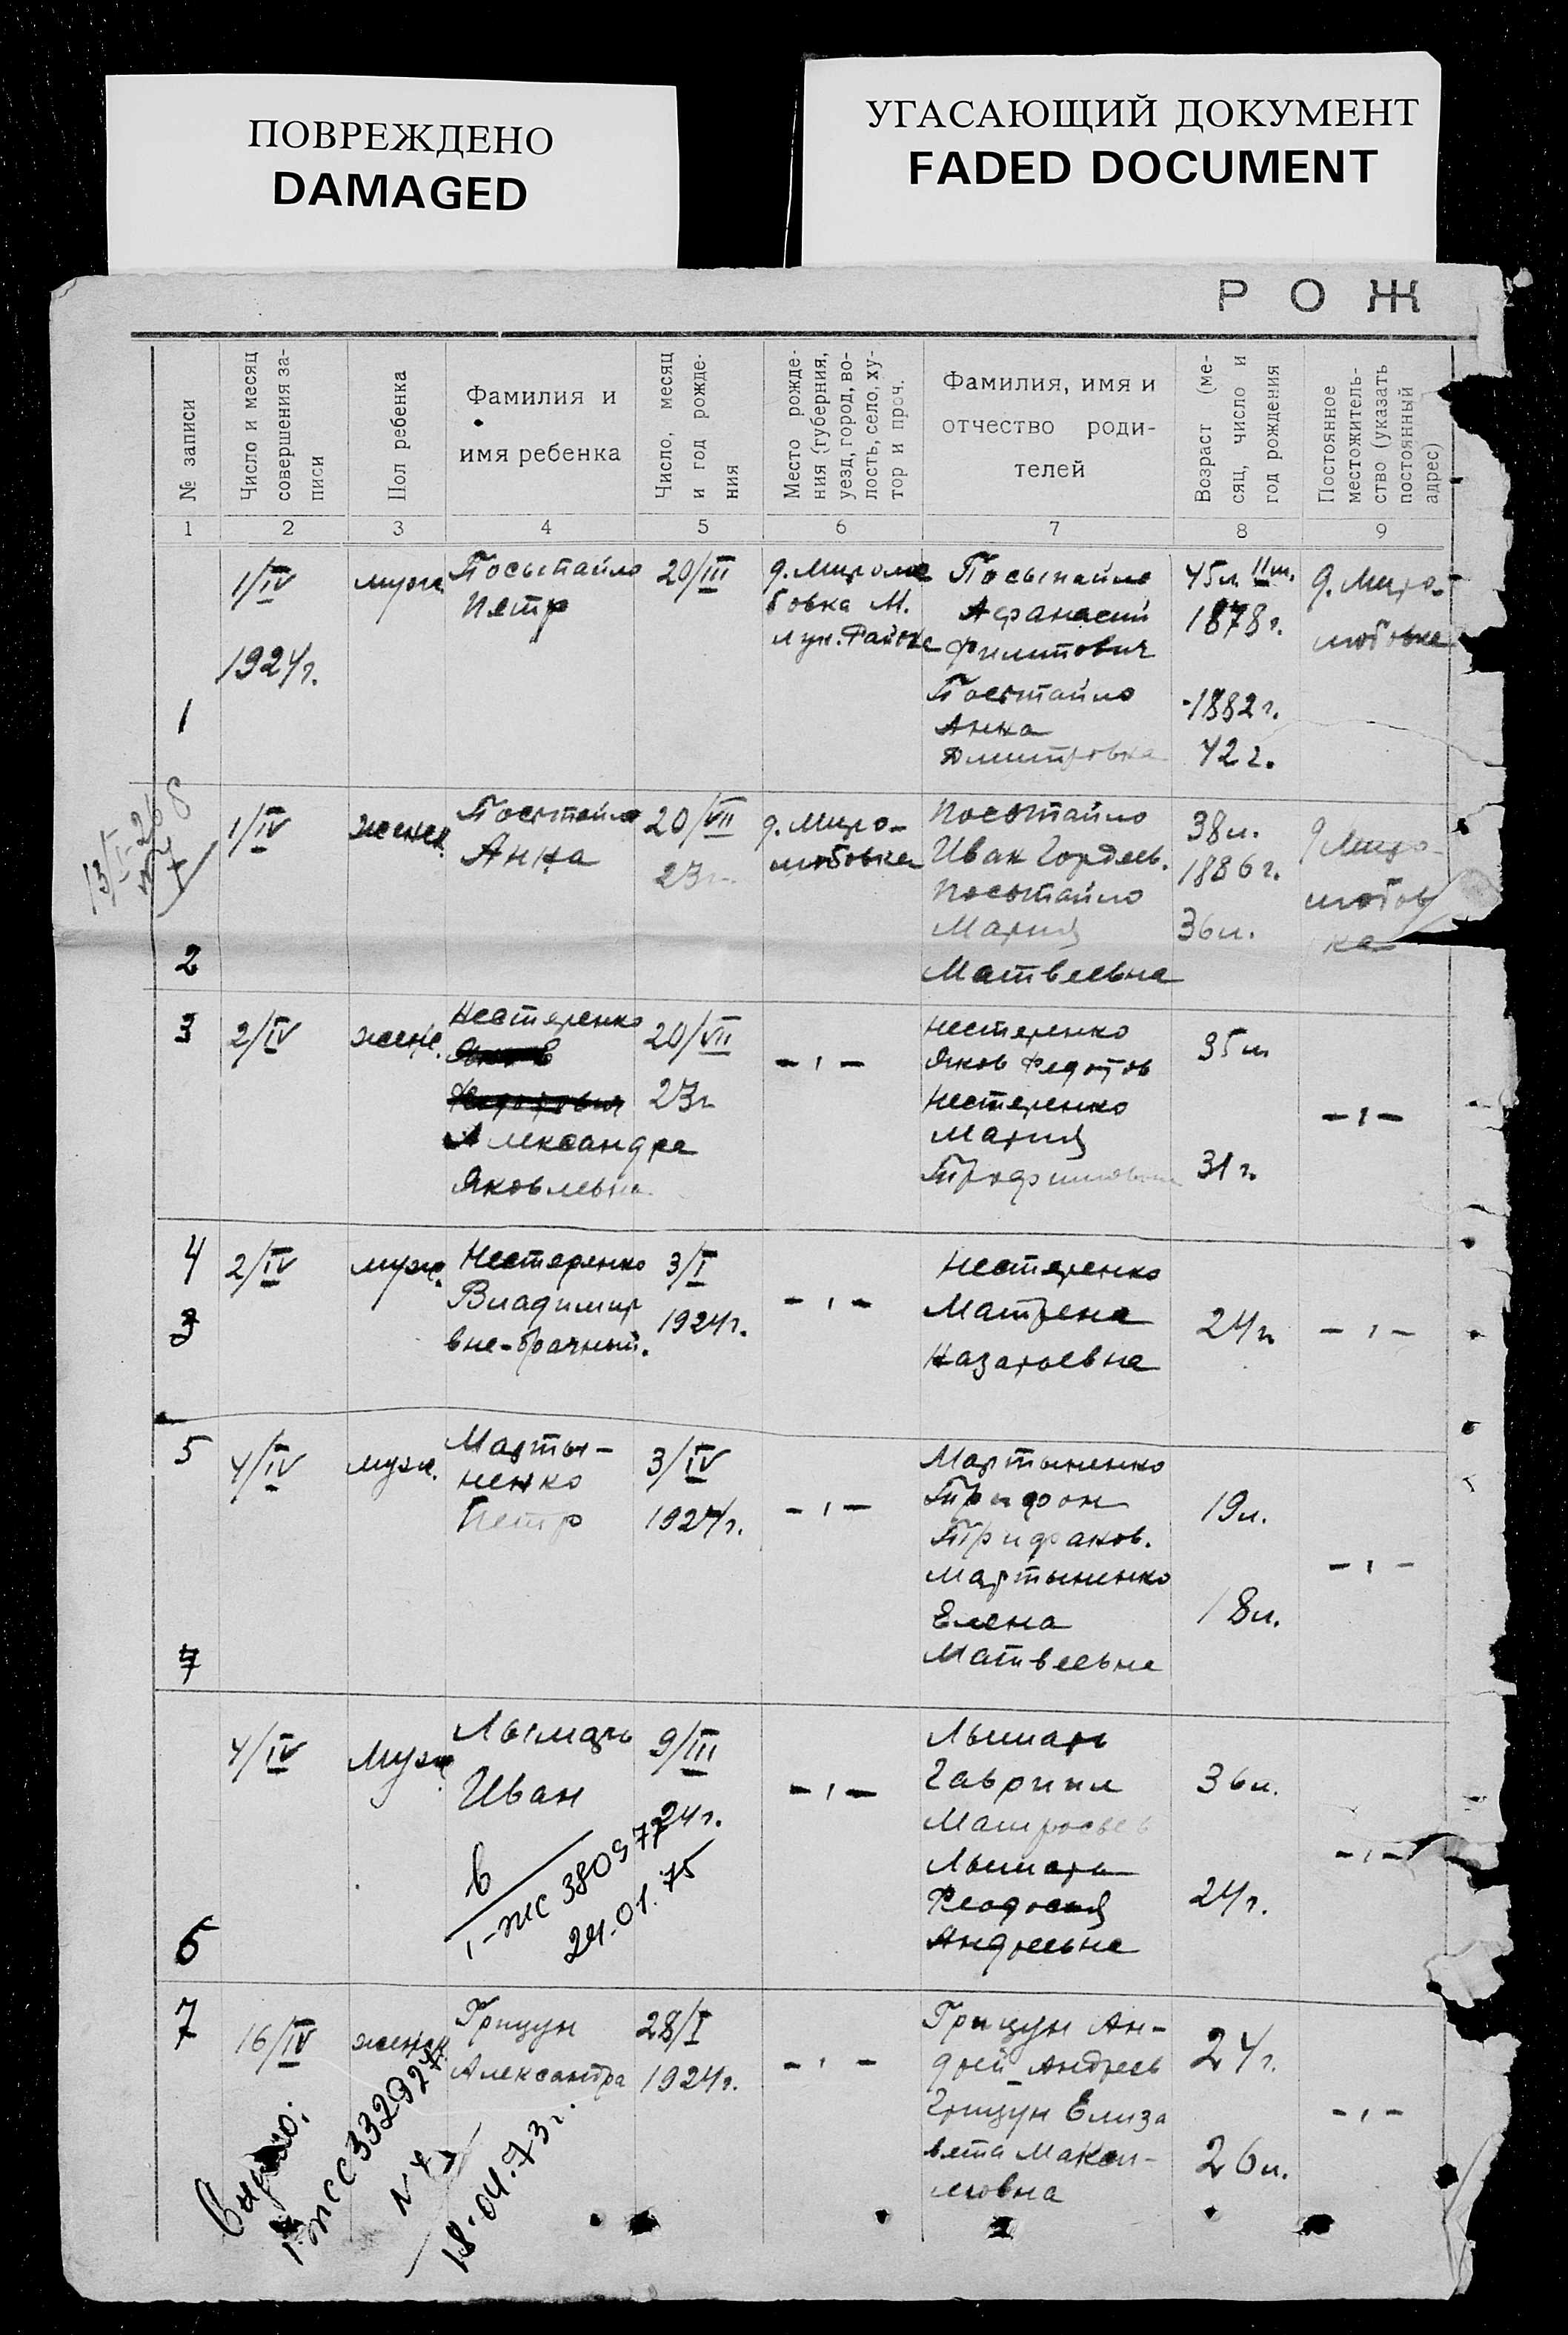 ПОВРЕЖДЕНО
DAMAGED
УГАСАЮЩИЙ ДОКУМЕНТ
FADED DOCUMENT
Р О Ж
№ записи
Число и месяц
совершения за-
писи
Пол ребенка
Фамилия и
имя ребенка
Число, месяц
и год рожде-
ния
Место рожде-
ния (губерния,
уезд, город, во-
лость, село, ху-
тор и проч.
Фамилия, имя и
отчество роди-
телей
Возраст (ме-
сяц, число и
год рождения
Постоянное
местожитель-
ство (указать
постоянный
адрес)
1 2 3 4 5 6 7 8 9
1
1/IV
1924г.
муж.
Посыпайло
Петр
20/III
д. Миролю
бовка М.
лун. Района
Посыпайло
Афанасий
Филипович
Посыпайло
Анна
Дмитровна
45л. II м.
1878г.
1882г.
42г.
д. Миро-
любовка
13/I-26
2
1/IV
женск.
Посыпайло
Анна
20/VII
23г.
д. Миро-
любовка
Посыпайло
Иван Гордеев.
Посыпайло
Мария
Матвеевна
38л.
1886г.
36л.
д Миро-
любов
ка
3
2/IV
женс.
Нестеренко
Александра
Яковлевна
20/VII
23г
- " -
Нестеренко
Яков Федотов
Нестеренко
Мария
Трофимовна
35л
31г.
- " -
4
3
2/IV
муж.
Нестеренко
Владимир
вне-брачный.
3/I
1924г.
- " -
Нестеренко
Матрена
Назарьевна
24г
- " -
5
4/IV
муж.
Марты-
ненко
Петр
3/IV
1924г.
- " -
Мартыненко
Трифон
Трифанов.
Мартыненко
Елена
Матвеевна
19л.
18л.
- " -
6
4/IV
Муж
Лымарь
Иван
9/III
24г.
- " -
Лымарь
Гавриил
Лымарь
Феодосия
Андреевна
36л.
24г.
- " -
в
I-жс 380977
24.01.75
7
16/IV
женск
Грицун
Александра
28/I
1924г.
- " -
Грицун Ан-
дрей Андреев
Грицун Елиза
вета Макси-
мовна
24г.
26л.
- " -
Выдано:
I жс 332927
N 7
18.04.73г.